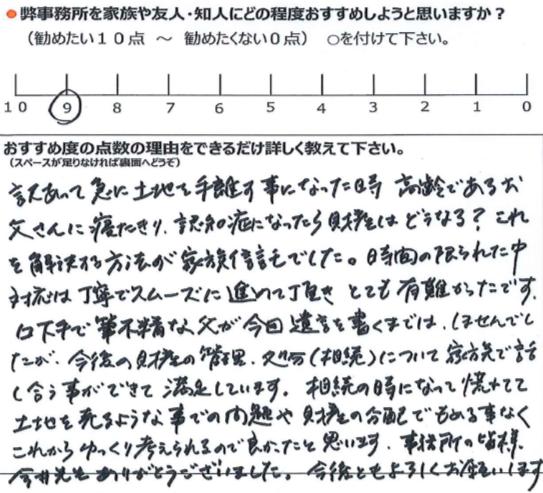 ●弊事務所を家族や友人・知人にどの程度おすすめしようと思いますか?
(勧めたい10点 ～ 勧めたくない0点) ○を付けて下さい。
10 9 8 7 6 5 4 3 2 1 0
おすすめ度の点数の理由をできるだけ詳しく教えて下さい。
(スペースが足りなければ裏面へどうぞ)
訳あって急に土地を手離す事になった時 高齢であるお
父さんに寝たきり、認知症になったら財産はどうなる? これ
を解決する方法が家族信託でした。時間の限られた中
対応は丁寧でスムーズに進めて頂き とても有難かったです。
口下手で筆不精な父が今回遺言を書くまでは、しませんでし
たが、今後の財産の管理、処分(相続)について家族で話
し合う事ができて満足しています。相続の時になって慌てて
土地を売るような事での問題や財産の分配でもめる事なく
これからゆっくり考えられるので良かったと思います。事務所の皆様、
今井先生ありがとうございました。今後ともよろしくお願いします